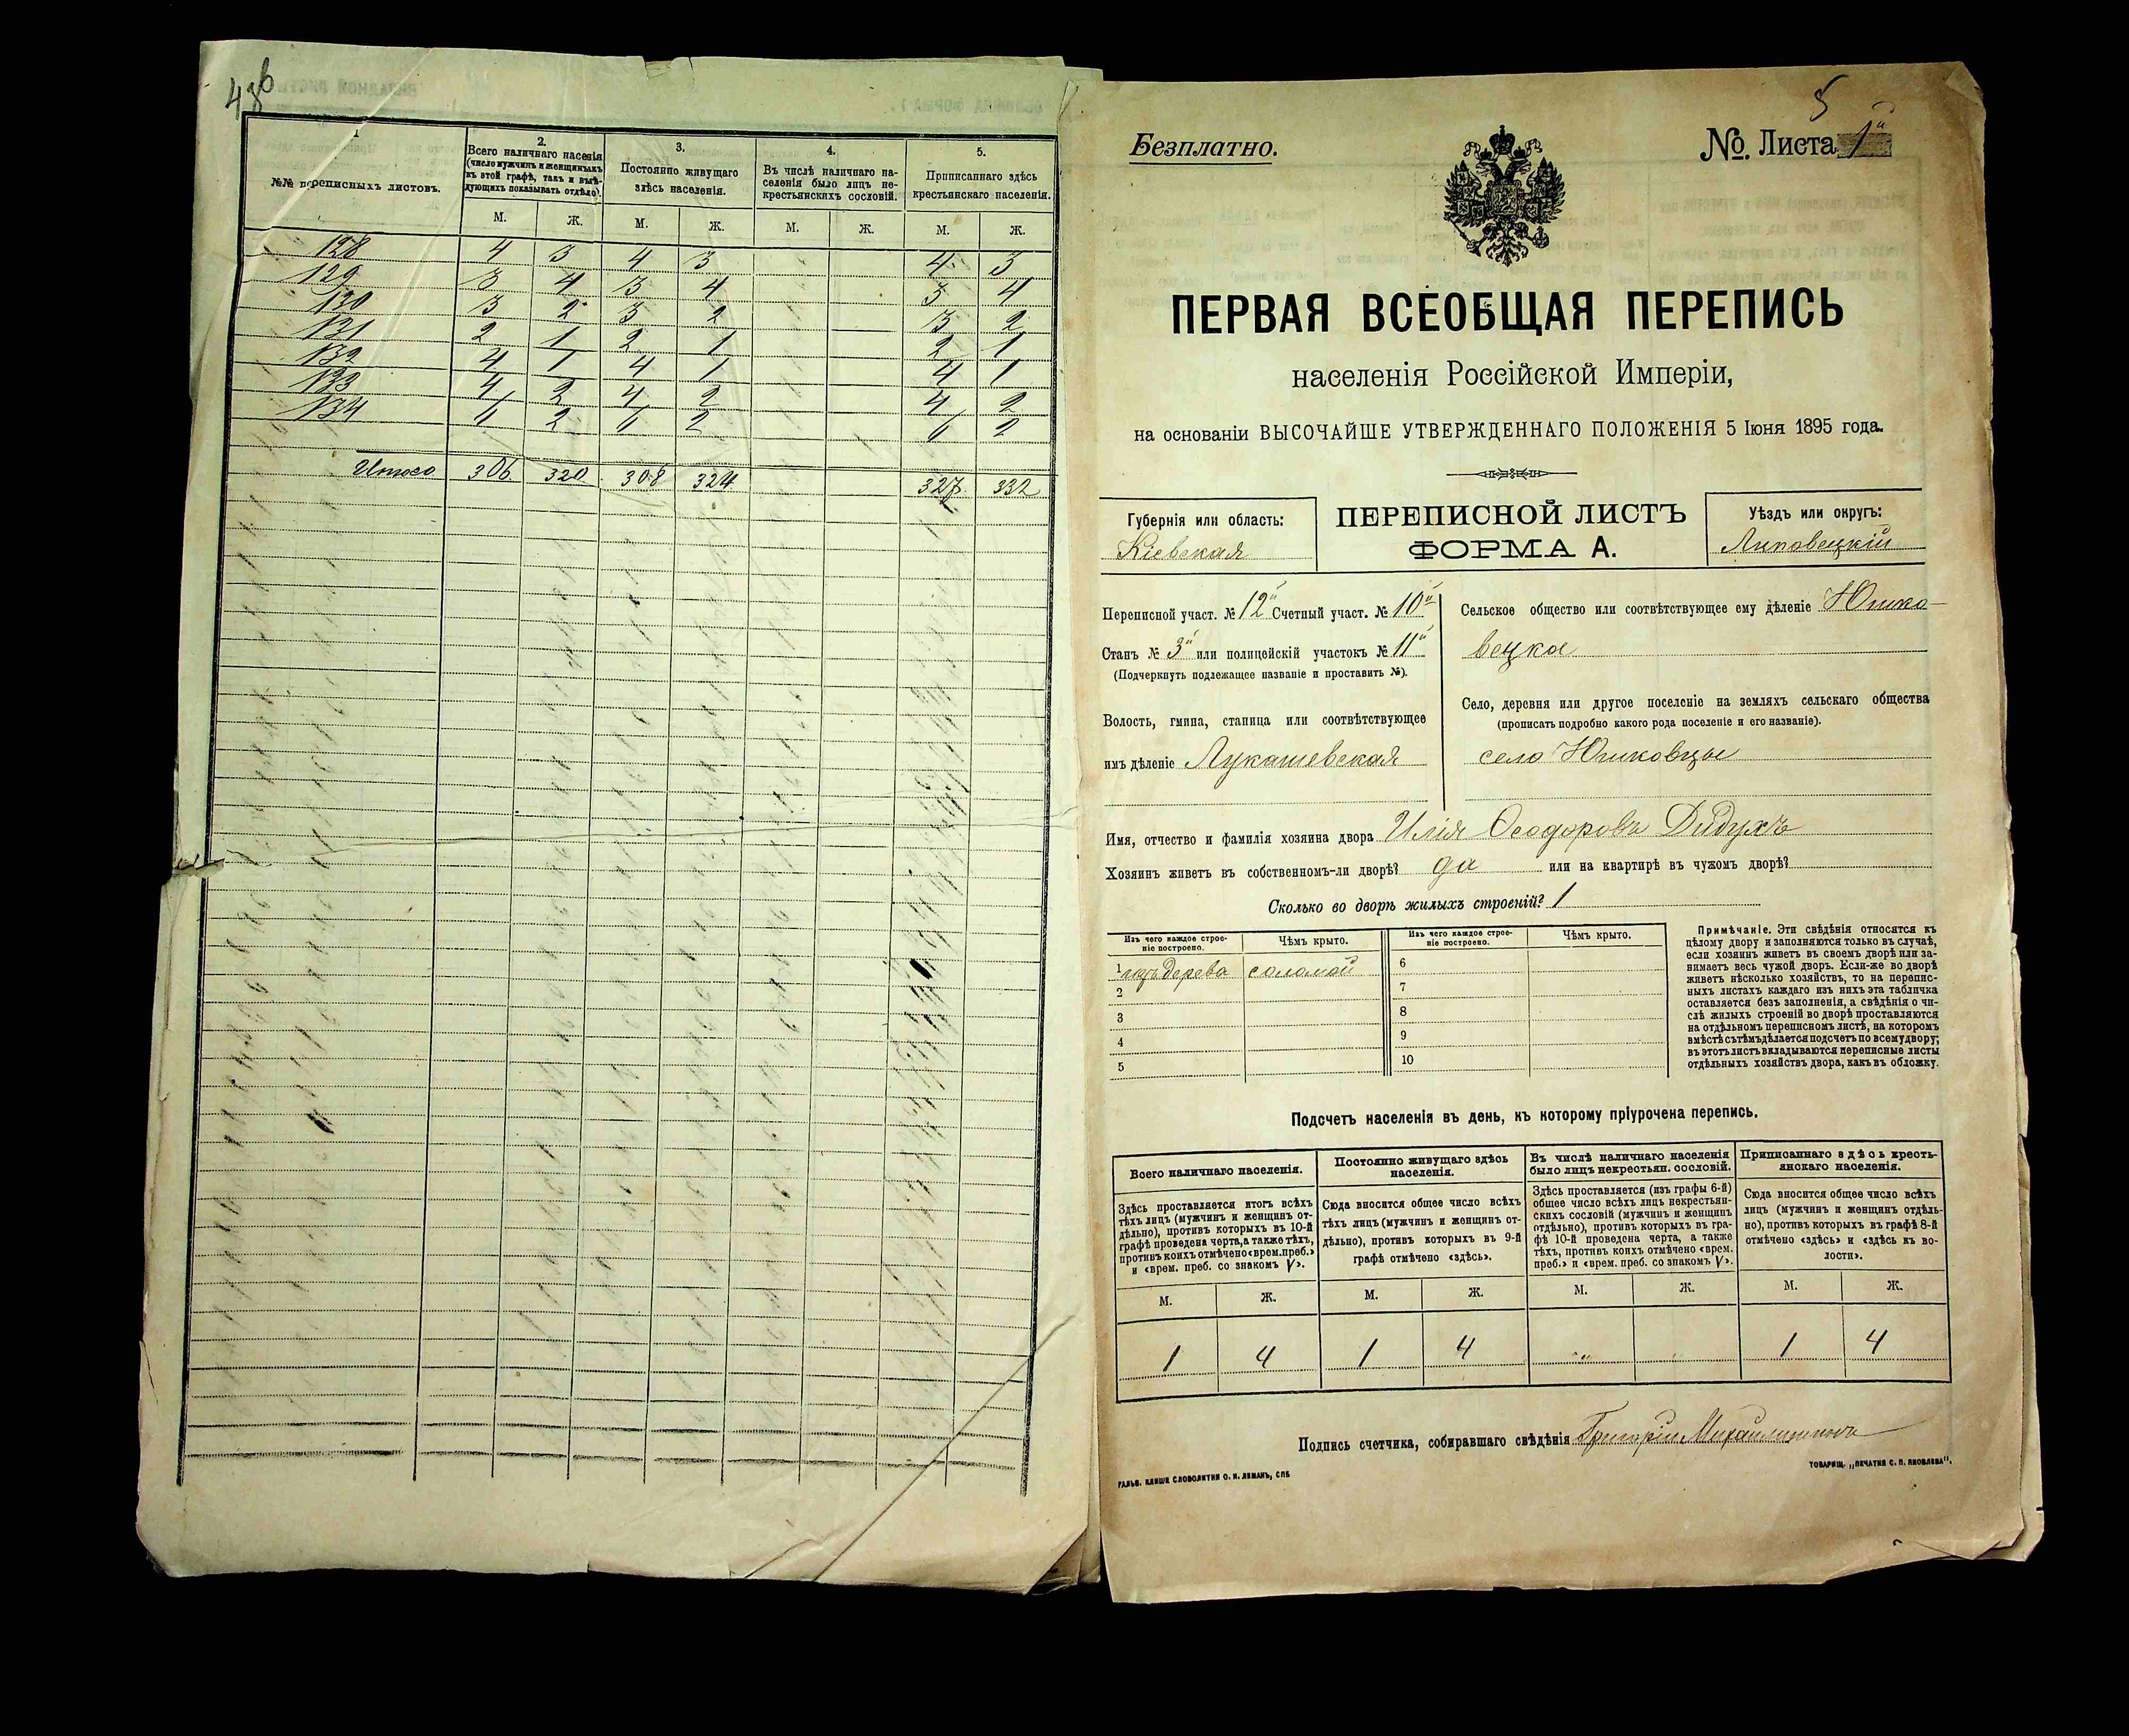 48б
1
№№ переписныхъ листовъ.
2.
Всего наличнаго населенія
(число мужчинъ и женщинъ какъ
въ этой графѣ, такъ и въ слѣ-
дующихъ показывать отдѣльно).
3.
Постоянно живущаго
здѣсь населенія.
4.
Въ числѣ наличнаго на-
селенія было лицъ не-
крестьянскихъ сословій.
5.
Приписаннаго здѣсь
крестьянскаго населенія.
М. Ж. М. Ж. М. Ж. М. Ж.
128 4 3 4 3 4 3
129 3 4 3 4 3 4
130 3 2 3 2 3 2
131 2 1 2 1 2 1
132 4 1 4 1 4 1
133 4 2 4 2 4 2
134 6 2 6 2 6 2
Итого 306 320 308 324 327 332
5
Безплатно.
№. Листа 1й
ПЕРВАЯ ВСЕОБЩАЯ ПЕРЕПИСЬ
населенія Россійской Имперіи,
на основаніи ВЫСОЧАЙШЕ УТВЕРЖДЕННАГО ПОЛОЖЕНІЯ 5 Іюня 1895 года.
Губернія или область:
Кіевская
ПЕРЕПИСНОЙ ЛИСТЪ
ФОРМА А.
Уѣздъ или округъ:
Липовецкій
Переписной участ. № 12й Счетный участ. № 10й
Станъ № 3й или полицейскій участокъ № 11й
(Подчеркнуть подлежащее названіе и проставить №).
Волость, гмина, станица или соотвѣтствующее
имъ дѣленіе Лукашевская
Сельское общество или соотвѣтствующее ему дѣленіе Юшко-
вецкое
Село, деревня или другое поселеніе на земляхъ сельскаго общества
(прописать подробно какого рода поселеніе и его названіе).
село Юшковцы
Имя, отчество и фамилія хозяина двора Илія Ѳеодоровъ Дидухъ
Хозяинъ живетъ въ собственномъ-ли дворѣ? да или на квартирѣ въ чужомъ дворѣ?
Сколько во дворѣ жилыхъ строеній? 1
Изъ чего каждое строе-
ніе построено.
Чѣмъ крыто.
Изъ чего каждое строе-
ніе построено.
Чѣмъ крыто.
1 изъ дерева соломой 6
2 7
3 8
4 9
5 10
Примѣчаніе. Эти свѣдѣнія относятся къ
цѣлому двору и заполняются только въ случаѣ,
если хозяинъ живетъ въ своемъ дворѣ или за-
нимаетъ весь чужой дворъ. Если-же во дворѣ
живетъ нѣсколько хозяйствъ, то на перепис-
ныхъ листахъ каждаго изъ нихъ эта табличка
оставляется безъ заполненія, а свѣдѣнія о чи-
слѣ жилыхъ строеній во дворѣ проставляются
на отдѣльномъ переписномъ листѣ, на которомъ
вмѣстѣ съ тѣмъ дѣлается подсчетъ по всему двору;
въ этотъ листъ вкладываются переписные листы
отдѣльныхъ хозяйствъ двора, какъ въ обложку.
Подсчетъ населенія въ день, къ которому пріурочена перепись.
Всего наличнаго населенія.
Здѣсь проставляется итогъ всѣхъ
тѣхъ лицъ (мужчинъ и женщинъ от-
дѣльно), противъ которыхъ въ 10-й
графѣ проведена черта, а также тѣхъ,
противъ коихъ отмѣчено «врем. преб.»
и «врем. преб. со знакомъ V».
Постоянно живущаго здѣсь
населенія.
Сюда вносится общее число всѣхъ
тѣхъ лицъ (мужчинъ и женщинъ от-
дѣльно), противъ которыхъ въ 9-й
графѣ отмѣчено «здѣсь».
Въ числѣ наличнаго населенія
было лицъ некрестьян. сословій.
Здѣсь проставляется (изъ графы 6-й)
общее число всѣхъ лицъ некрестьян-
скихъ сословій (мужчинъ и женщинъ
отдѣльно), противъ которыхъ въ гра-
фѣ 10-й проведена черта, а также
тѣхъ, противъ коихъ отмѣчено «врем.
преб.» и «врем. преб. со знакомъ V».
Приписаннаго здѣсь кресть-
янскаго населенія.
Сюда вносится общее число всѣхъ
лицъ (мужчинъ и женщинъ отдѣль-
но), противъ которыхъ въ графѣ 8-й
отмѣчено «здѣсь» и «здѣсь къ во-
лости».
М. Ж. М. Ж. М. Ж. М. Ж.
1 4 1 4 " " 1 4
Подпись счетчика, собиравшаго свѣдѣнія Григорій
ГАЛЬВ. КЛИШЕ СЛОВОЛИТНИ О. И. ЛЕМАНЪ, СПБ
ТОВАРИЩ. „ПЕЧАТНЯ С. П. ЯКОВЛЕВА".